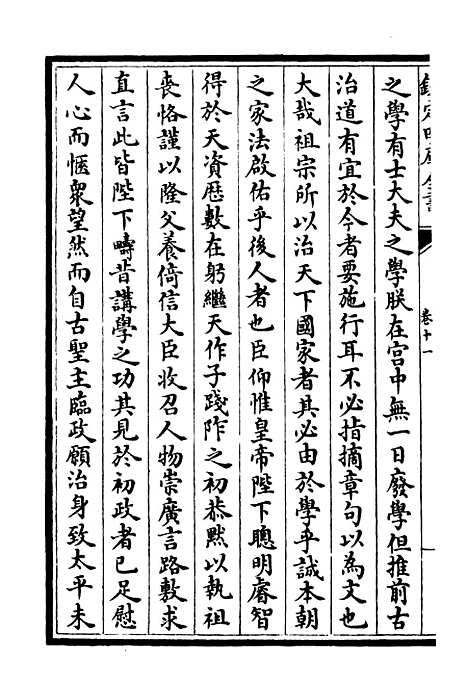 欽定四庫全書
卷十一
之學有士大夫之學朕在宫中無一日廢學但推前古
治道有宜於今者要施行耳不必指摘章句以為文也
大哉祖宗所以治天下國家者其必由於學乎誠本朝
之家法啟佑乎後人者也臣仰惟皇帝陛下聰明睿智
得於天資歴數在躬繼天作子踐阼之初恭默以執祖
喪恪謹以隆父養倚信大臣收召人物崇廣言路敷求
直言此皆陛下疇昔講學之功其見於初政者已足慰
人心而愜衆望然而自古聖主臨政願治身致太平未